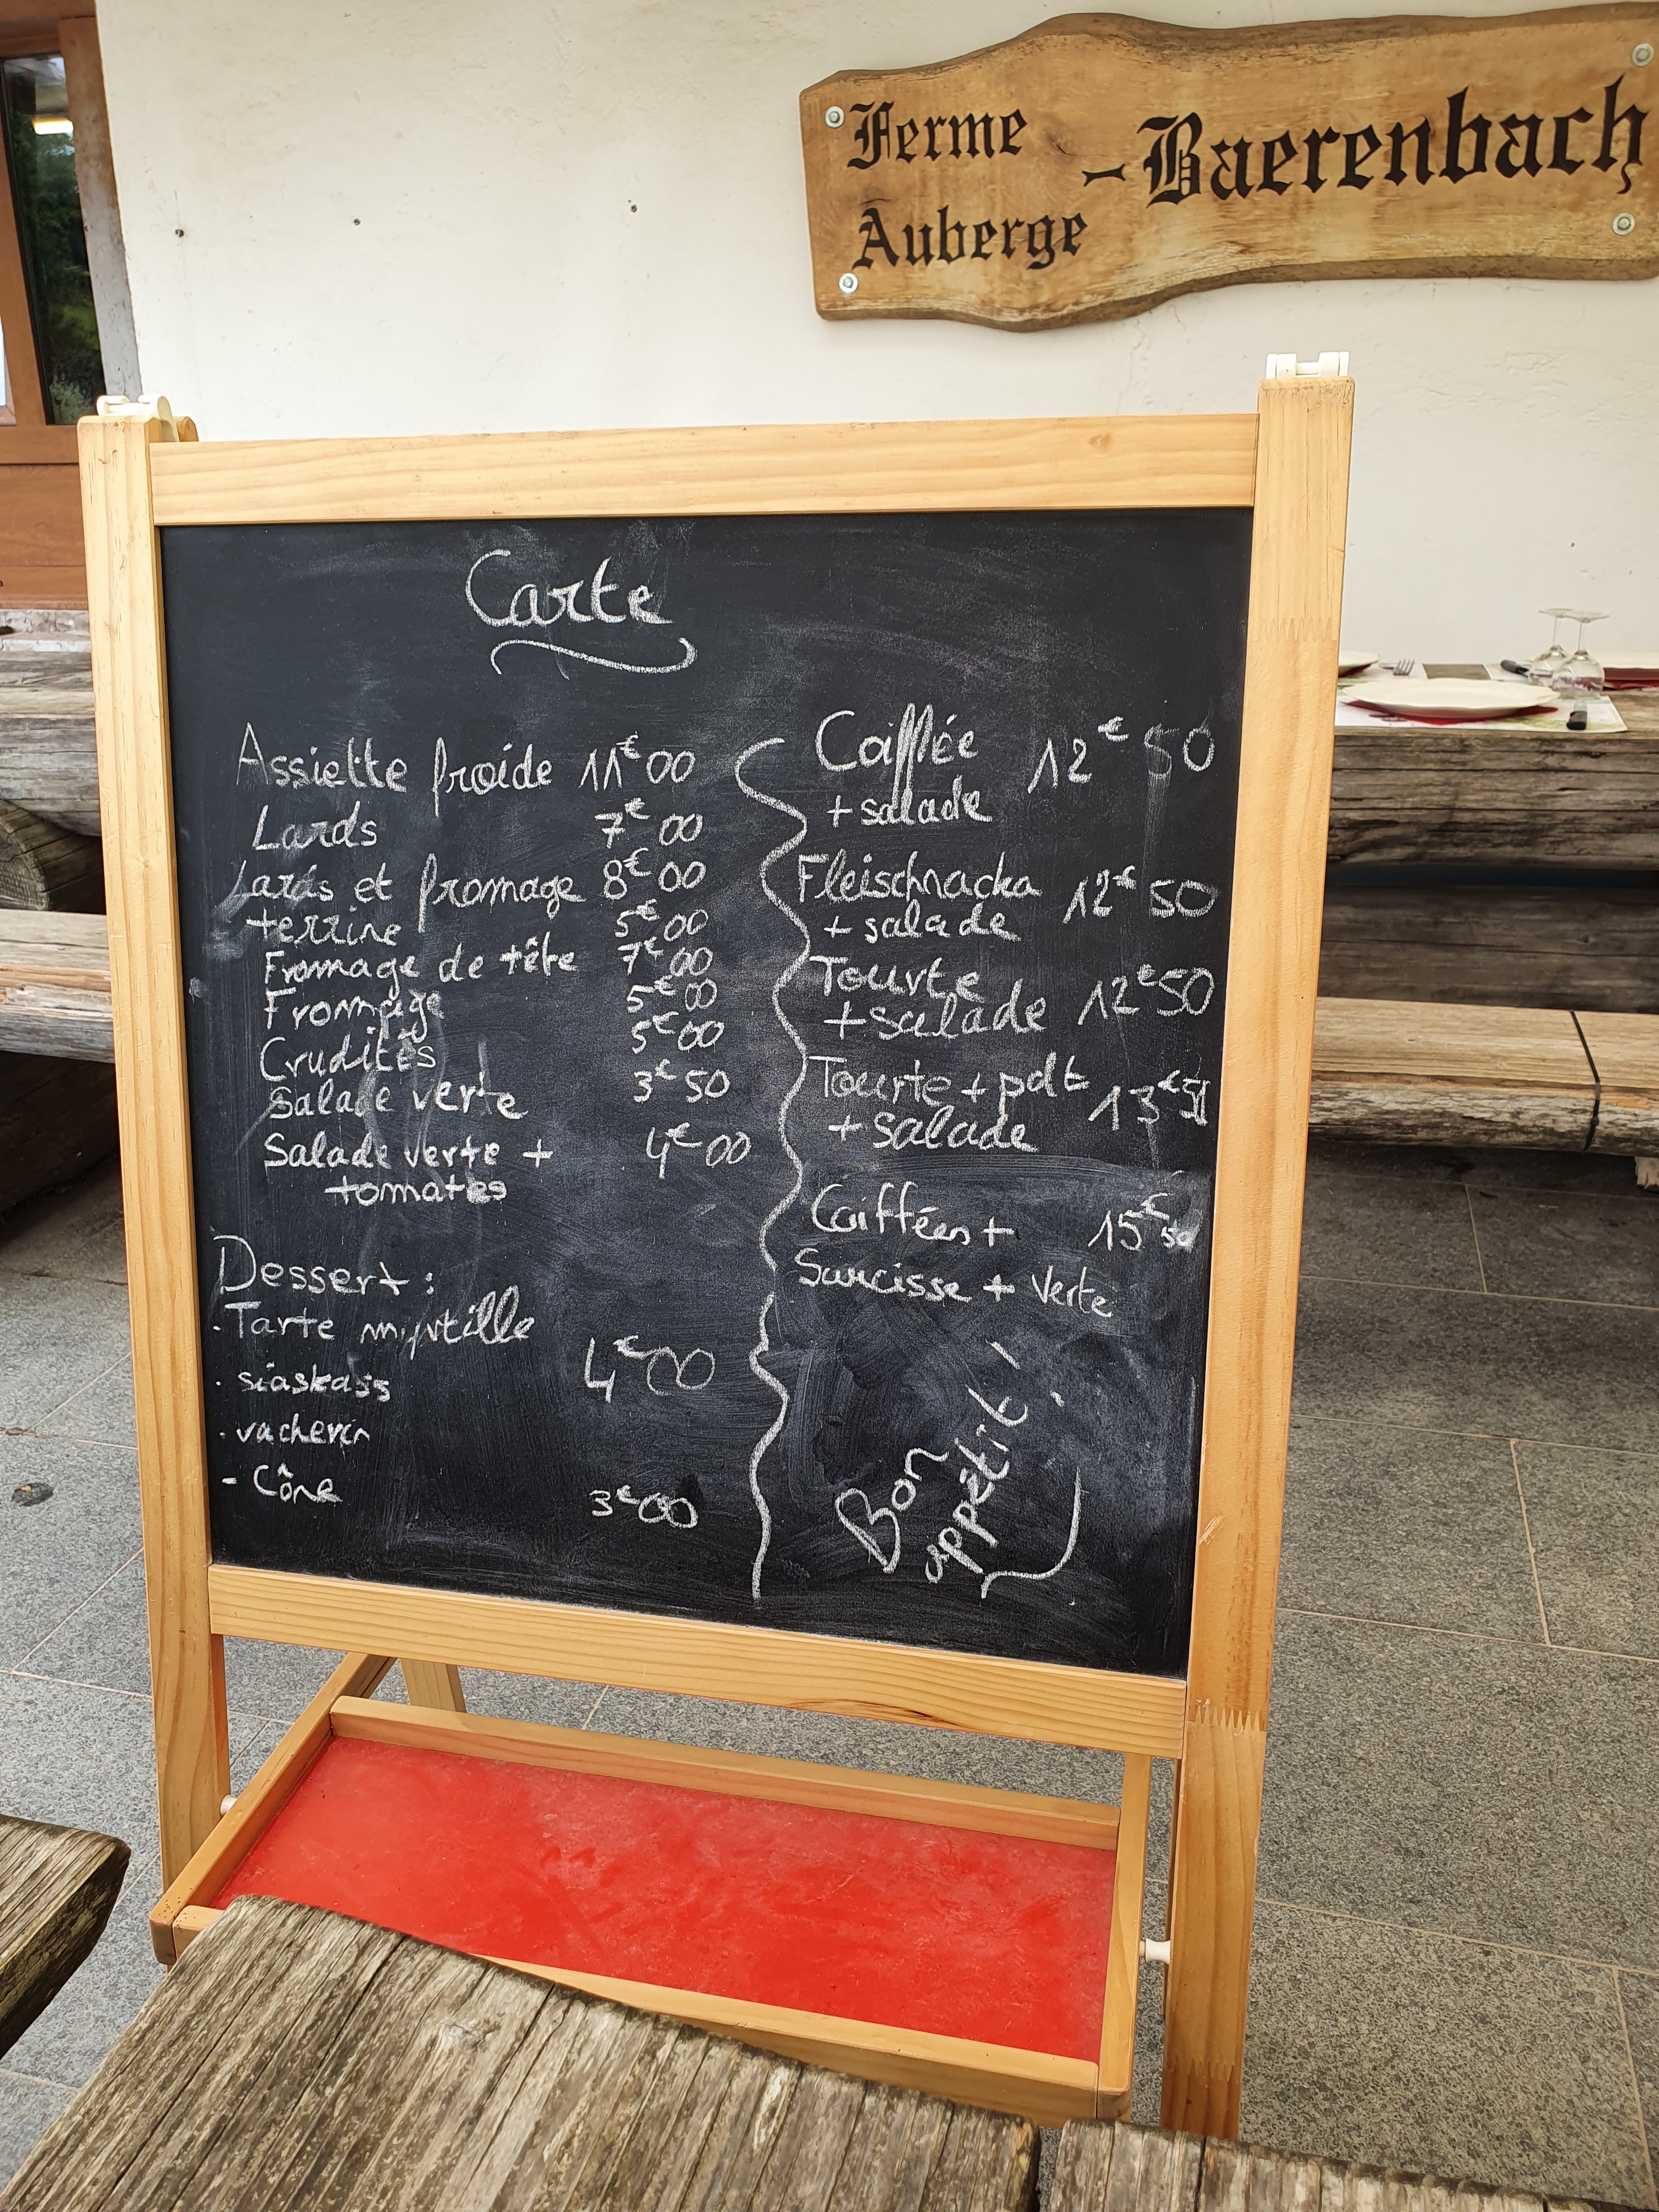 Ferme
Auberge
-Baerenbach
Carte
Assiette froide 11€00
Lards 7€00
Lards et fromage 8€00
terrine 5€00
Fromage de tête 7€00
Fromage 5€00
Crudités 5€00
Salade verte 3€50
Salade verte + 4€00
tomates
Dessert :
. Tarte myrtille
4€00
. siaskass
. vacherin
- Cône 3€00
Coiffée 12€50
+ salade
Fleischnacka 12€50
+ salade
Tourte 12€50
+ salade
Tourte + pdt 13€50
+ salade
Coiffées + 15€50
Saucisse + verte
Bon
appétit !